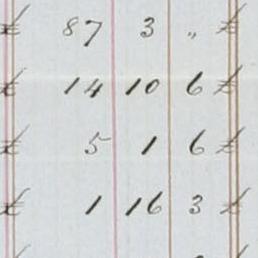 £ 87 3 „ £
£ 14 10 6 £
£ 5 1 6 £
£ 1 16 3 £